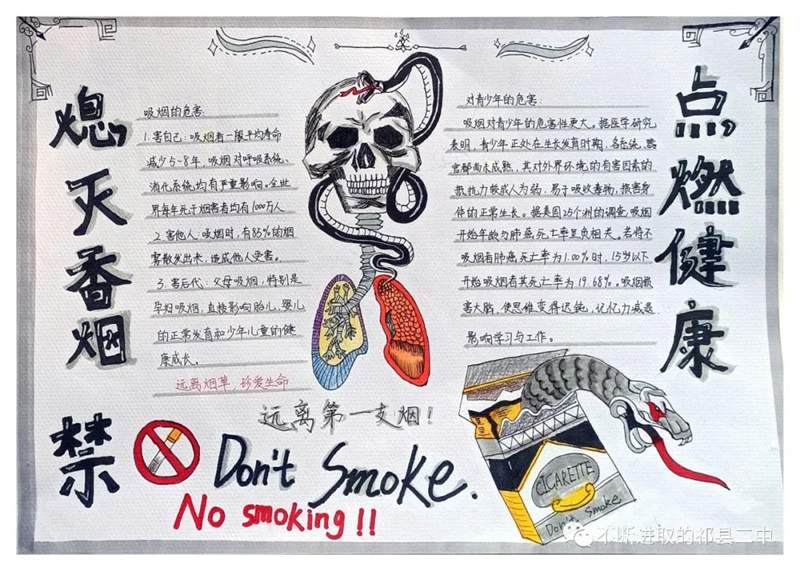 熄灭香烟
点燃健康
吸烟的危害:
1.害自己:吸烟者一般平均寿命
减少5~8年,吸烟对呼吸系统、
消化系统均有严重影响。全世
界每年死于烟害者均有1000万人
2.害他人:吸烟时,有85%的烟
雾散发出来,造成他人受害。
3.害后代:父母吸烟,特别是
孕妇吸烟,直接影响胎儿,婴儿
的正常发育和少年儿童的健
康成长。
远离烟草,珍爱生命
对青少年的危害:
吸烟对青少年的危害性更大。据医学研究
表明,青少年正处在生长发育时期,各系统、器
官都尚未成熟,其对外界环境的有害因素的
抵抗力较成人为弱,易于吸收毒物,损害身
体的正常生长。据美国25个洲的调查,吸烟
开始年龄与肺癌死亡率呈负相关。若将不
吸烟者肺癌死亡率为1.00%时,15岁以下
开始吸烟者其死亡率为19.68%。吸烟损
害大脑,使思维变得迟钝,记忆力减退
影响学习与工作。
远离第一支烟!
禁
Don't Smoke.
No smoking!!
CIGARETTE
Don't Smoke
不断进取的祁县二中